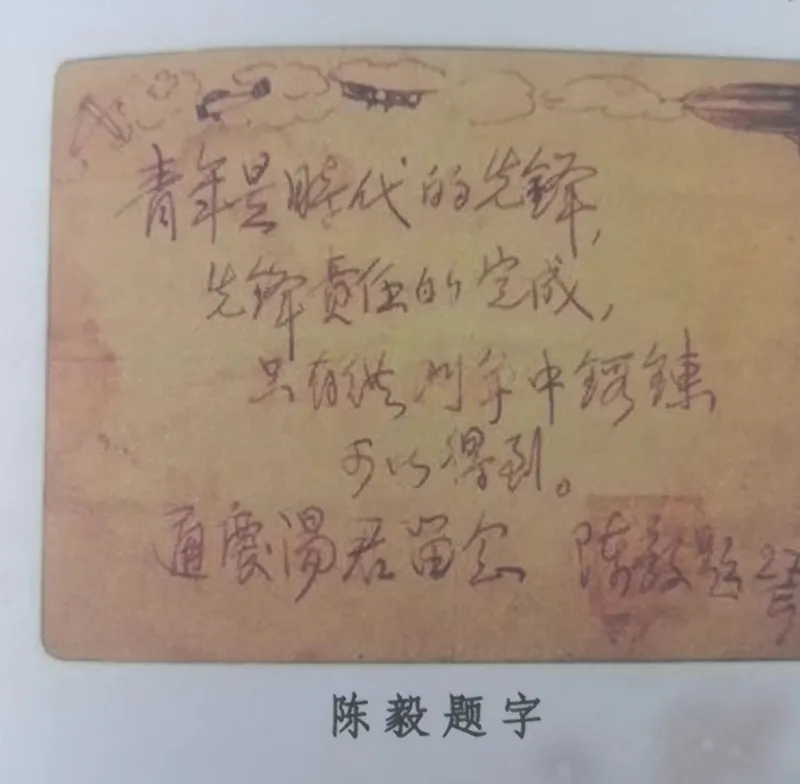 青年是時代的先鋒，
先鋒責任的完成，
只有從 中鍛鍊
可以得到。
通 湯君留念 陳毅題 27
陈毅题字